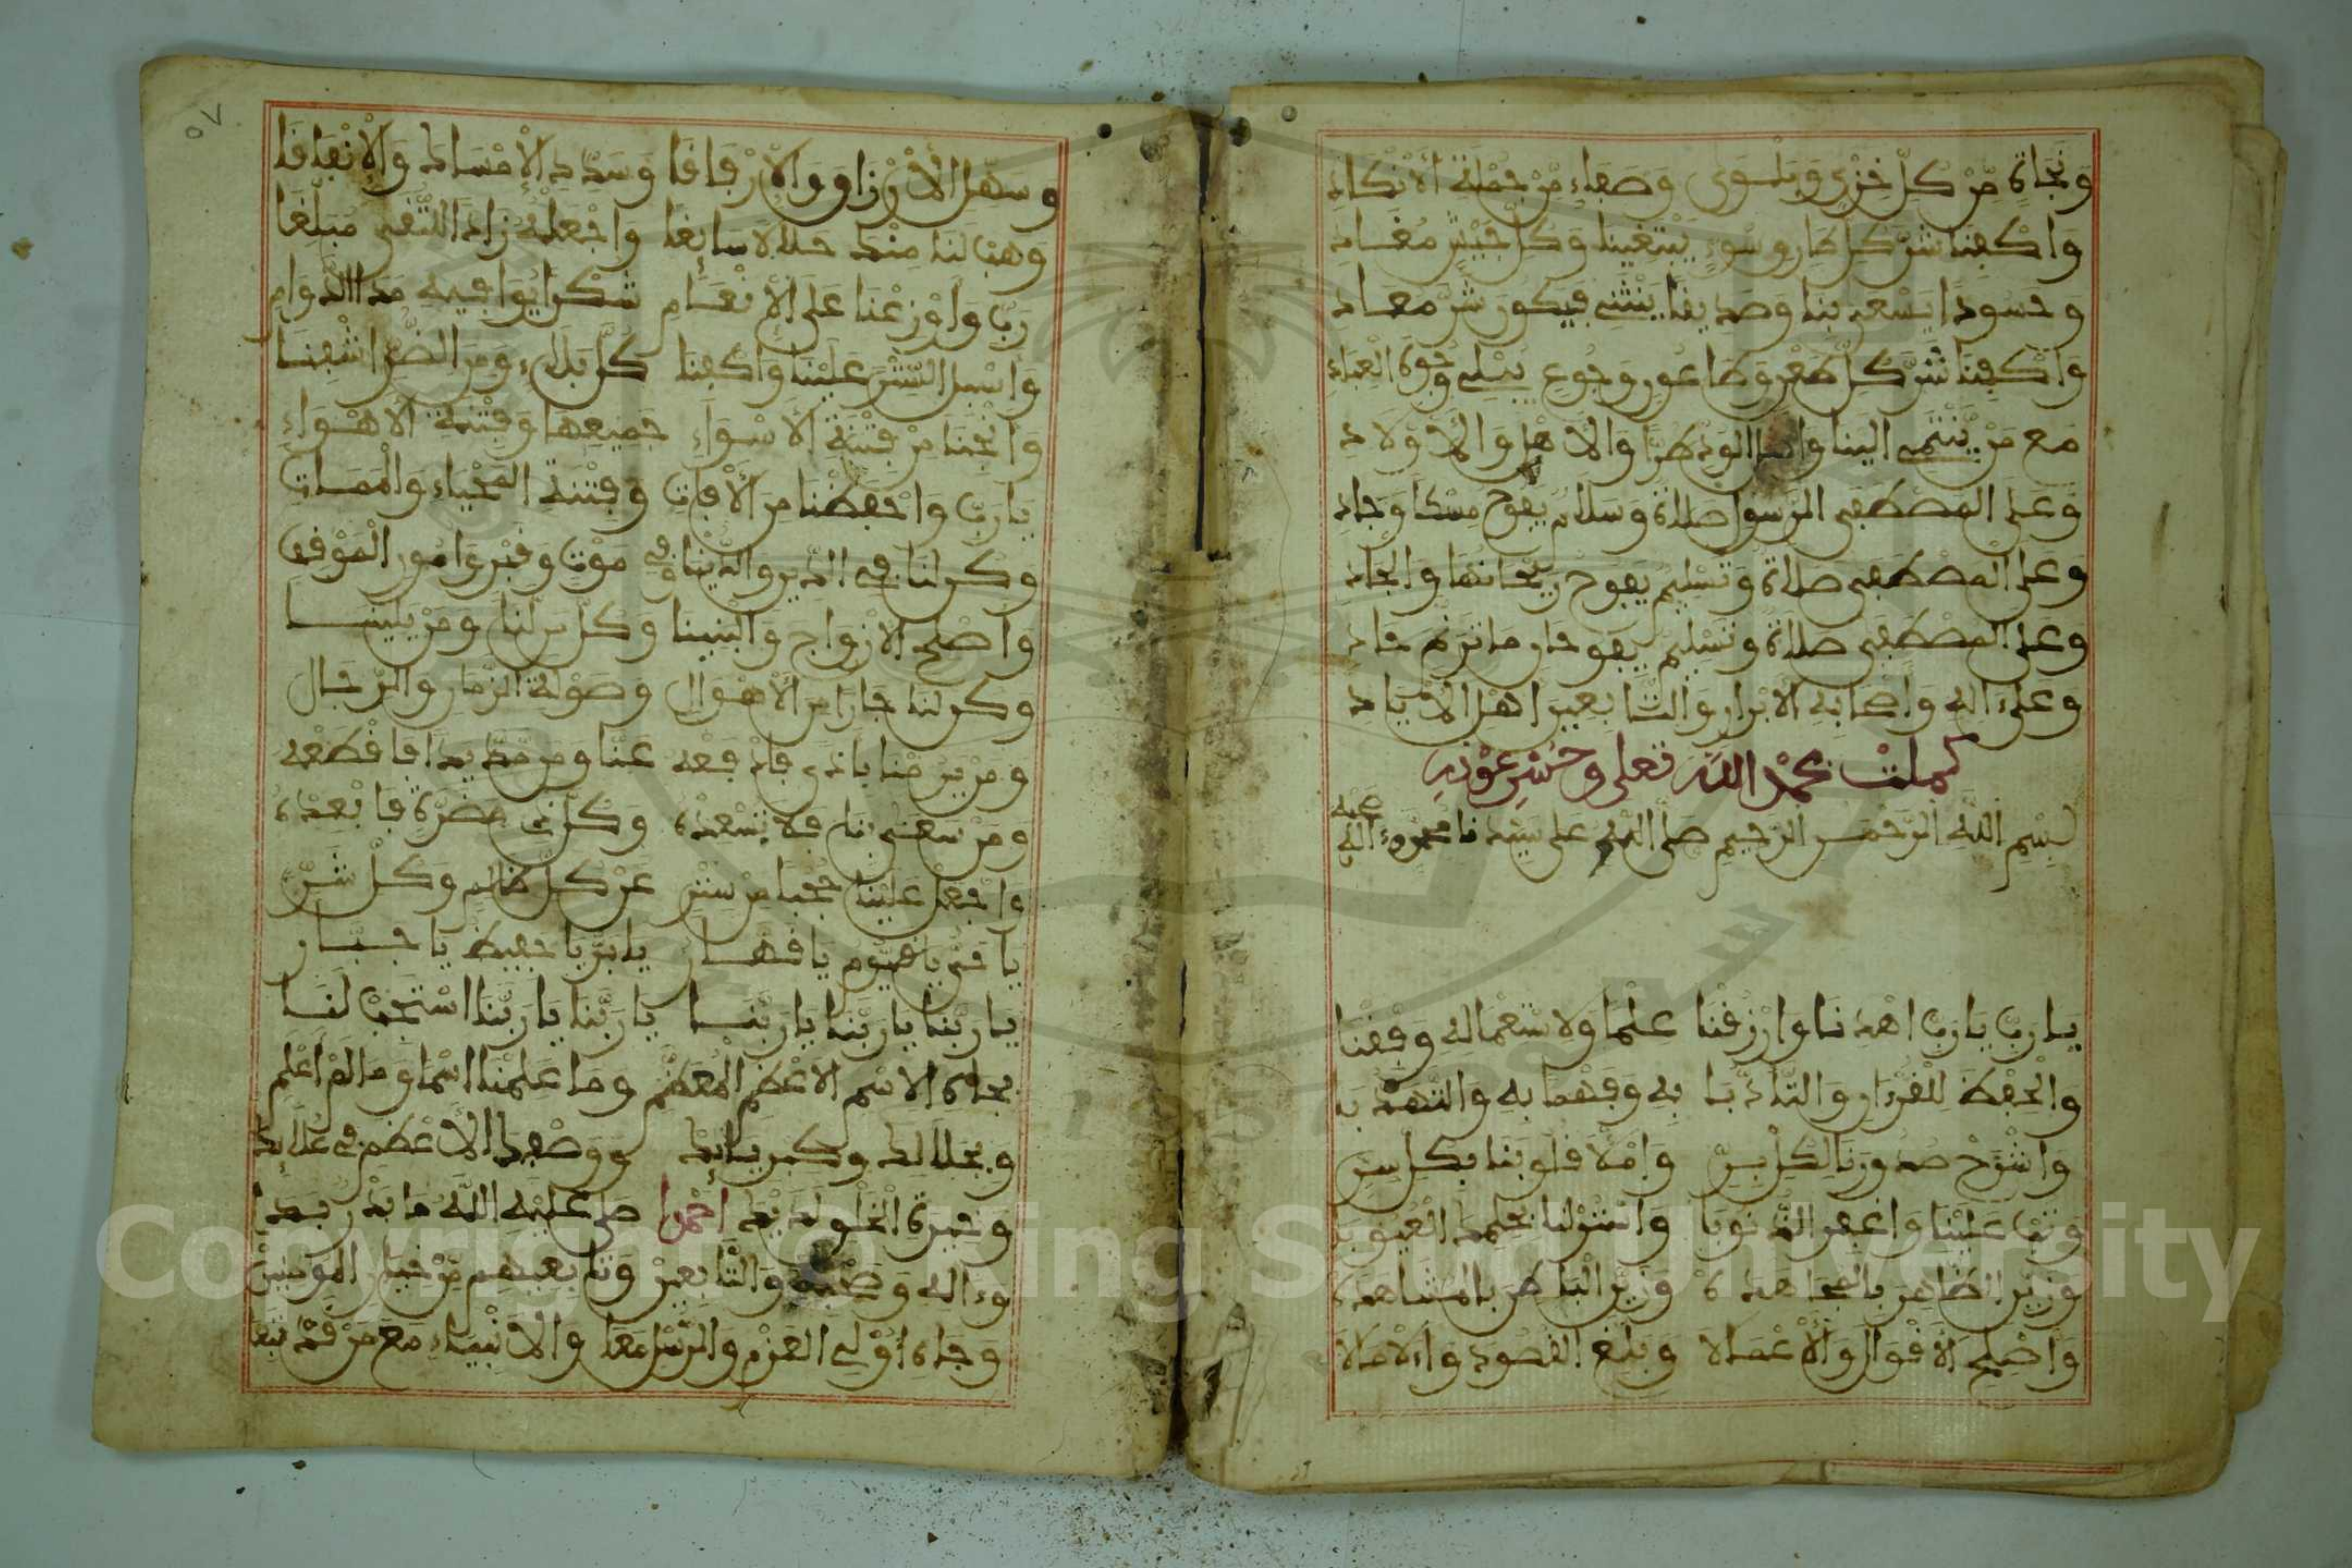 ونجاة من كل خزي وبلوى وصفاء من جملة الأنكاد
واكفنا شر كل طار وسوء يبتغينا وكل جيش مغاد
وحسودا يسعى بنا وصديقا ينثني فيكون شر معاد
واكفنا شر كل طعن وطاعون وجوع يبلي وجوه العباد
مع من ينتمي الينا والود طرا والاهل والاولاد
وعلى المصطفى الرسول صلاة وسلام يفوح مسكا وجاد
وعلى المصطفى صلاة وتسليم يفوح ريحانها والجاد
وعلى المصطفى صلاة وتسليم يفوحان ما ترنم حاد
وعلى ءاله وأصحابه الأبرار والتابعين اهل الأياد
كملت بحمد الله تعلى وحسن عونه
بسم الله الرحمن الرحيم صلى الله على سيدنا محمد وءاله
صحبه
يا رب يا رب اهدنا وارزقنا علما ولاستعماله وفقنا
والحفظ للقرءان والتأدبا به وفهما به والتهذبا
واشرح صدورنا لكل بر واملأ قلوبنا بكل سر
وتب علينا واغفر الذنوبا واستر لنا بحلمك العيوبا
وزين الظاهر بالمجاهده وزين الباطن بالمشاهده
وأصلح الأقوال والأعمالا وبلغ القصود والآمالا
٥٧
وسهل الأرزاق والأرفاقا وسدد الإمساك والإنفاقا
وهب لنا منك حلالا سائغا واجعله زاد التقى مبلغا
رب وأوزعنا على الإنعام شكرا يوافيه مدا الدوام
واسبل الستر علينا واكفنا كل بلاء ومن الضر اشفنا
وانجنا من فتنة الأسواء جميعها وفتنة الأهواء
يا رب واحفظنا من الآفات وفتنة المحياء والممات
وكن لنا في الدين والدنيا وفي موت وقبر وامور الموقف
واصلح الازواج والبنينا وكل من لنا ومن يلينا
وكن لنا جارا من الأهوال وصولة الزمان والرجال
ومن يرمنا باذى فادفعه عنا ومن مد يدا فاقطعه
ومن سعى بنا فلا تسعده وكل ذي مضرة فابعده
واجعل علينا حجبا من ستر عن كل ظالم وكل شر
يا حي يا قيوم يا قهار يا بر يا حفيظ يا جبار
يا ربنا يا ربنا يا ربنا يا ربنا يا ربنا استجب لنا
بجاه الاسم الاعظم المعظم وما علمنا اسما وما لم اعلم
وبجلالك وكبريائك ووصفك الأعظم في علائك
وخيرة الخلق لديك احمدا صلى عليه الله ما بدر بدا
وءاله وصحبه والتابعين وتابعيهم من خيار المومنين
وجاه أولي العزم والرسل معا والانبياء مع من قد تبعا
Copyright © King Saud University
1957